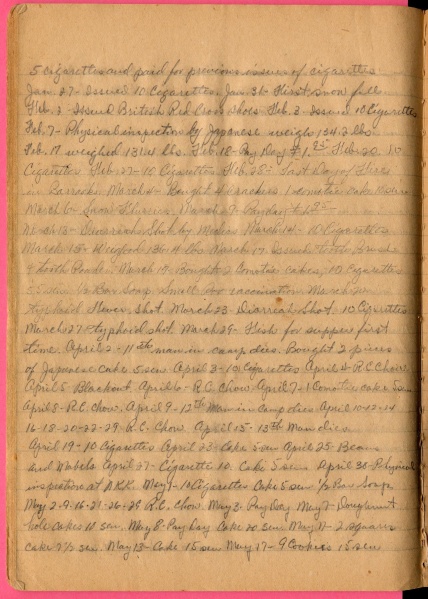 5 cigarettes and paid for previous issue of cigarettes
Jan. 27- Issued 10 Cigarettes. Jan. 31- First snow fall
Feb. 3- Issued British Red Cross shoes Feb. 3- Issued 10 Cigarettes
Feb. 7- Physical inspection by Japanese weighs 134.2 lbs.
Feb. 17 weighed 131.4 lbs. Feb. 18- Pay Day Feb. 20 10
Cigarettes Feb. 27- 10 Cigarettes. Feb. 28- Last Day of Fires
in Barracks. March 4- Bought 4 crackers 1 cake
March 6- Snow Flurries. March 9- Payday
March 13- Shot by Medics March 14- 10 Cigarettes
March 15- Weighed 136.4 lbs March 17. Issued tooth brush
& tooth Powder. March 19- Bought 2 cakes, 10 Cigarettes
Soap Small vaccination March 20-
typhoid Fever shot. March 23- Diarreah Shot. 10 Cigarettes
March 27- typhoid shot. March 29- Fish for supper first
time. April 2- 11th man in camp dies. Bought 2 pieces
of Japanese cake 5 sen. April 3- 10 Cigarettes April 4- R.C. Chow.
April 5 Blackout. April 6- R.C. Chow. April 7- 1 cake 5 sen
April 8- R.C. Chow. April 9- 12th Man in Camp dies April 10-12-14
16-18-20-22-29 R.C. Chow. April 15- 13th Man dies.
April 19- 10 Cigarettes April 23- Cake 5 sen April 25- Beans
and April 27- Cigarettes 10. Cake 5 sen. April 30- Physical
inspection at May 1- 10 Cigarettes Cake 5 sen 1/2 Bar Soap
May 2-9-16-23-26-29 R.C. Chow. May 3- Pay Day May 7- Doughnut
hole Cakes 10 sen. May 8- Pay Day Cake 20 sen May 11- 2 square
cake 7 1/2 sen. May 13- Cake 15 sen May 17- 9 Cookies 15 sen